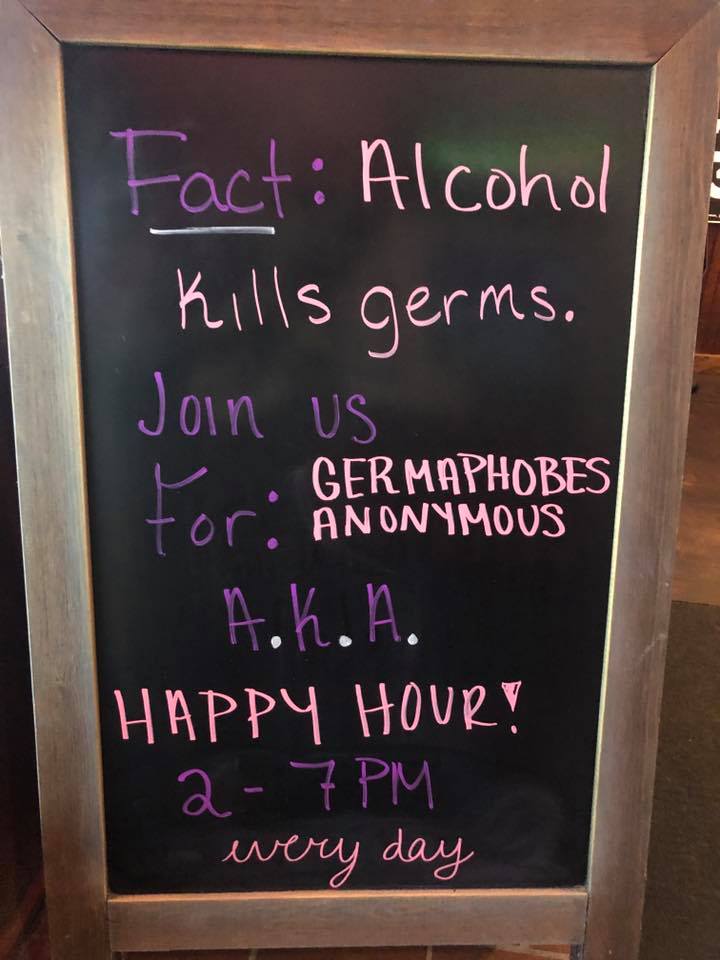 Fact: Alcohol
Kills germs.
Join us
For: GERMAPHOBES
ANONYMOUS
A.K.A.
HAPPY HOUR!
2 - 7 PM
every day